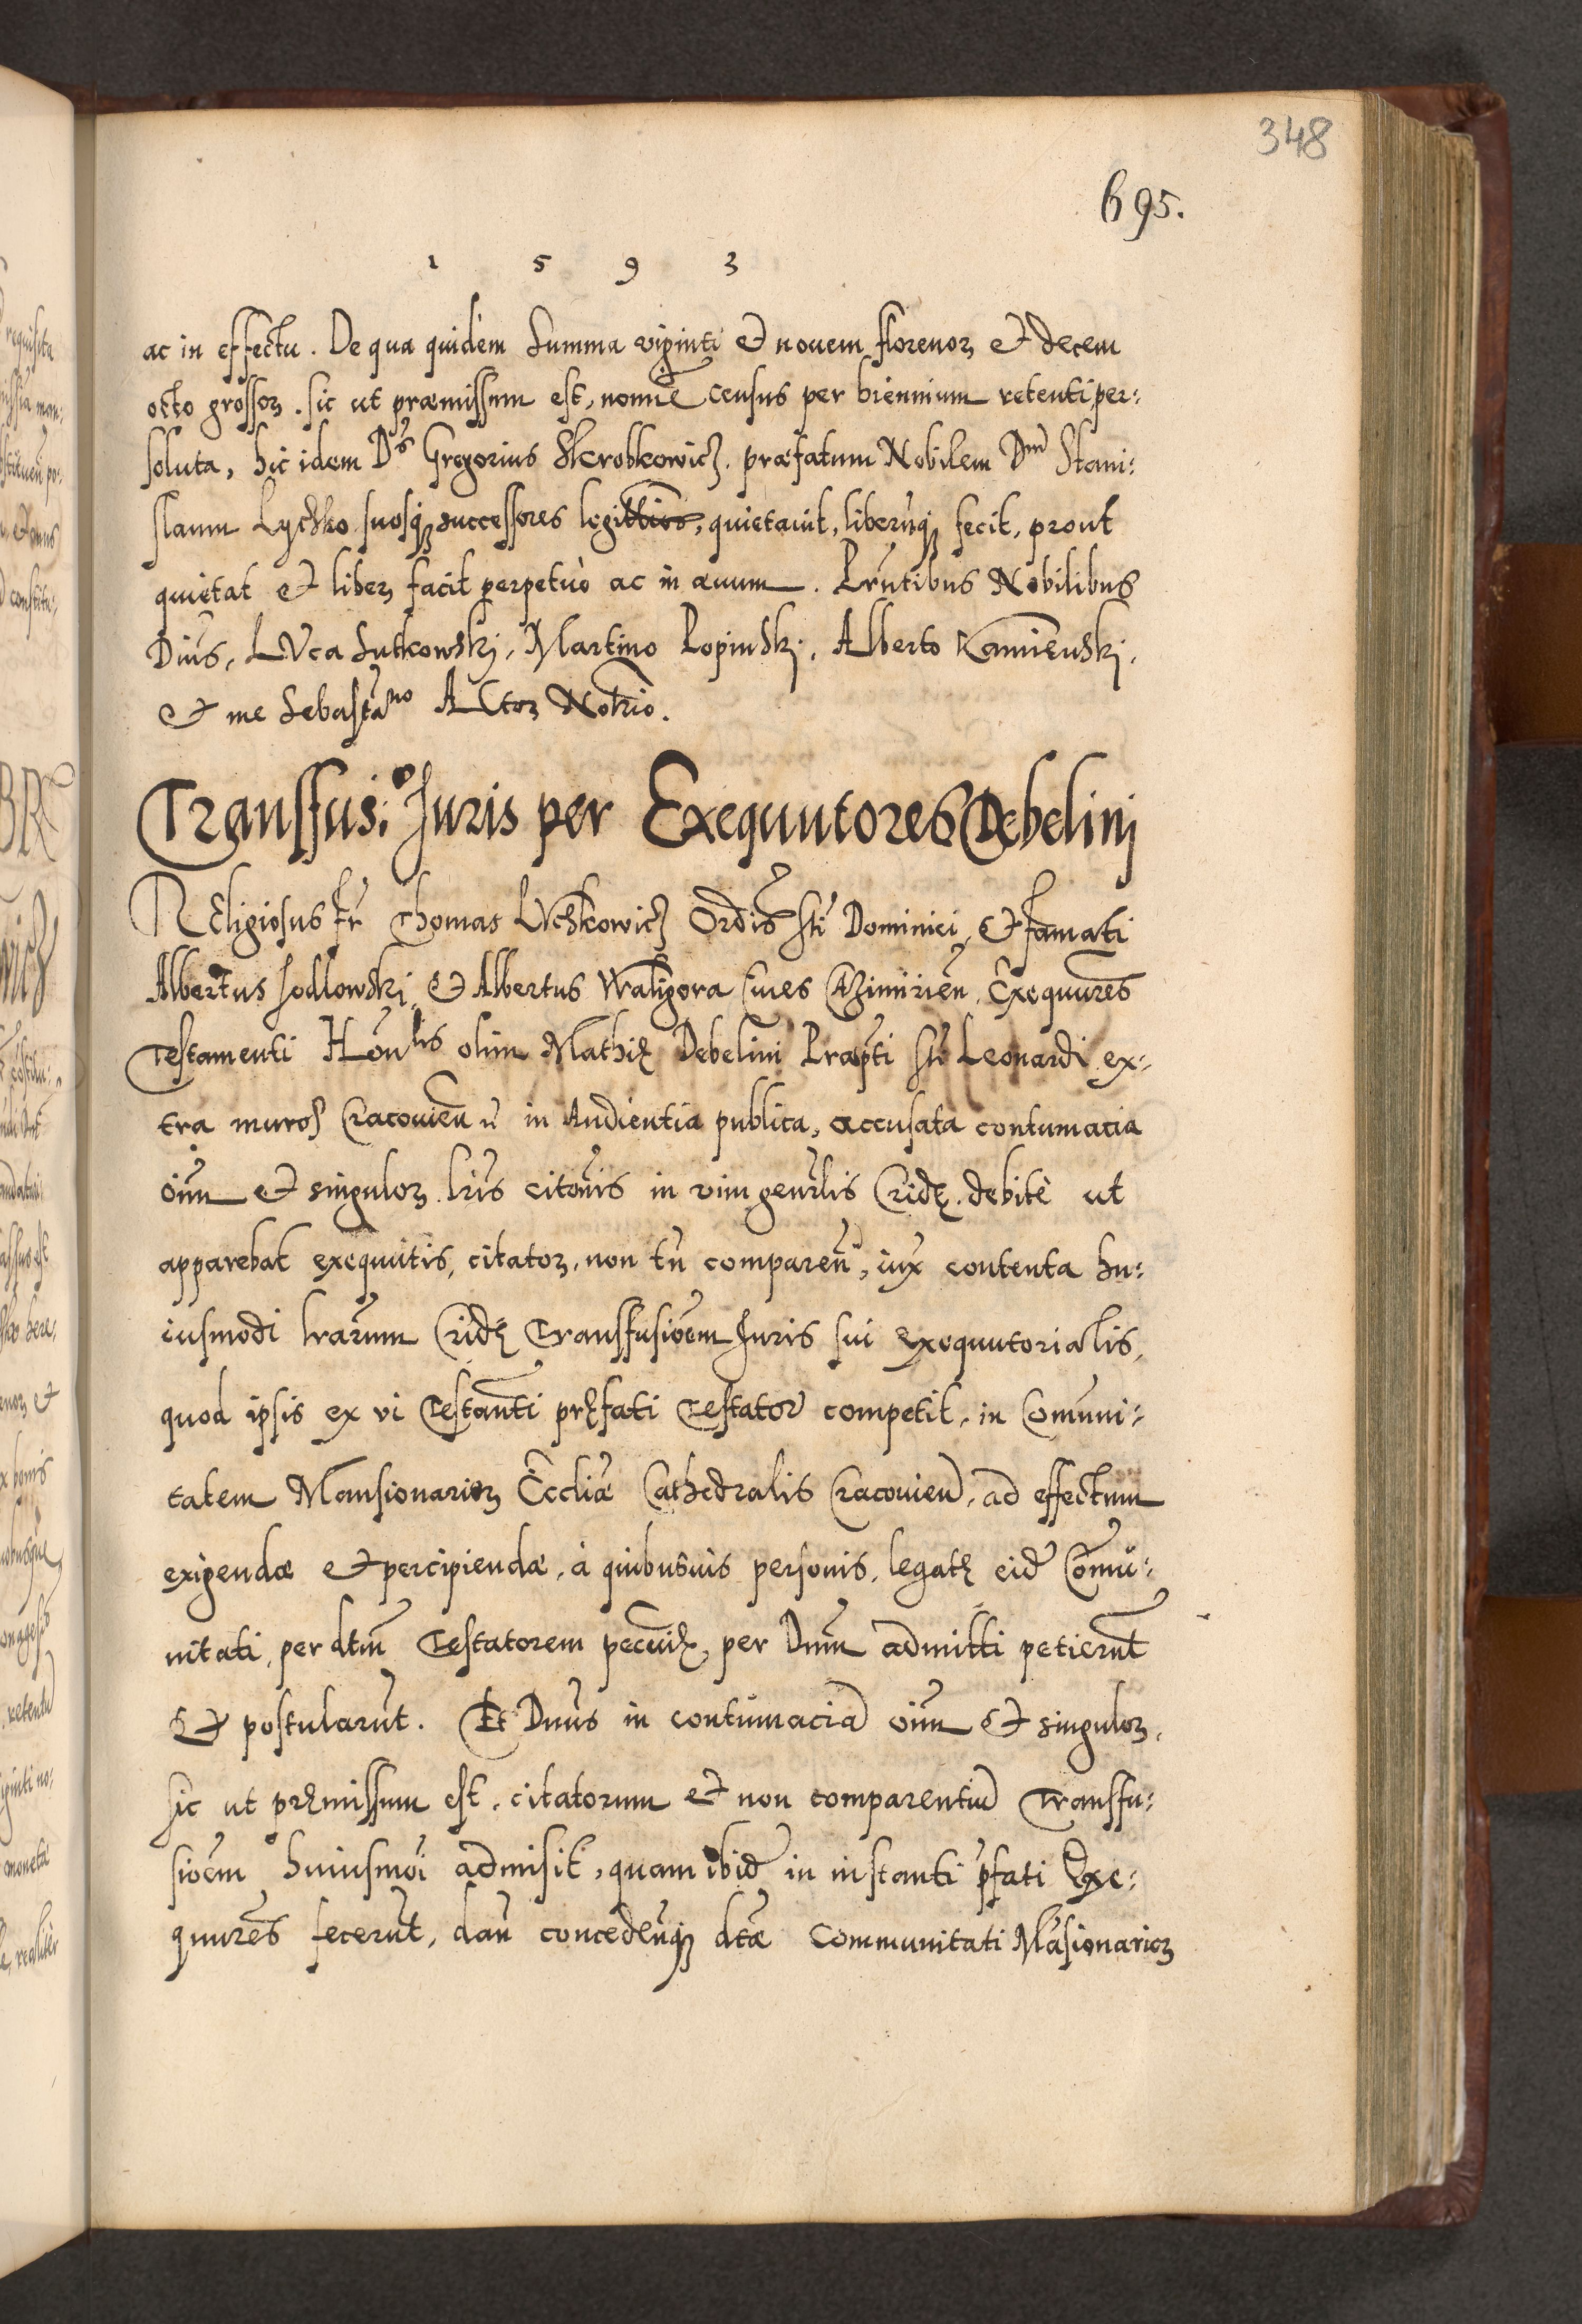 348
695.
1 5 9 3
ac in effectu. De qua quidem Summa viginti et nouem florenoꝝ et decem
octo grossoꝝ. sic ut præmissum est, nomīe census per biennium retenti per:
soluta, hic idem Dˢ Gregorius Skrobkowicz. præfatum Nobilem Dnū Stani:
slaum Lyczko suosqꝫ successores legittīos, quietauit, liberūqꝫ fecit, prout
quietat et liberꝫ facit perpetuò ac in æuum. Prn̄tibus Nobilibus
Dn̄is, LVca Sutkowskj, Martino Lopinskj, Alberto Kamīenskj,
et me Sebastiāno ACtoꝝ Notrīo.
Transfus:º Juris per Exequutores Debelinj
REligiosus Fr̄ Thomas LVchkowicz Ordīs Sti Dominici, et famati
Albertus Jodlowskj, et Albertus Waligora Ciues Cazimirieñ, Exequures
Testamenti Hon̄lis olim Mathię Debelini Præpti Sti Leonardi ex:
tra muros Cracouieñ in Audientia publica, accusata contumacia
oīum et singuloꝝ. lrīs citōnis in vim genrlis Cridę. debitè ut
apparebat exequutis, citatoꝝ, non tn̄ compareñ, iux contenta hu:
iusmodi lrārum Cridę Transfusiōem Juris sui exequutorialis,
quod ipsis ex vi Testanti pręfati Testator̄ competit, in Comuni:
tatem Mansionarioꝝ Eccliæ Cathedralis Cracouieñ, ad effectum
exigendæ et percipiendæ, à quibusuis personis, legatę eid̄ Cōmu:
nitati, per dtm̄ Testatorem pecunię, per Dnm̄ admitti petierūt
et postularūt. Et Dnūs in contumaciā oīum et singuloꝝ,
sic ut pręmissum est, citatorum et non comparentiū Transfu:
siōem huiusmōi admisit, quam ibid̄ in instanti p̄fati Exe:
quures fecerūt, dan̄ concedeñqꝫ dtæ Communitati Māsionarioꝝ